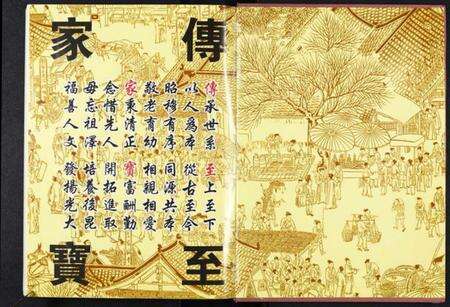 傳家
至寶
傳承世系 至上至下
以人為本 從古至今
昭穆有序 同源共本
敬老育幼 相親相愛
家秉清正 寶富酬勤
念惜先人 開拓進取
毋忘祖澤 培養後昆
福善人文 發揚光大